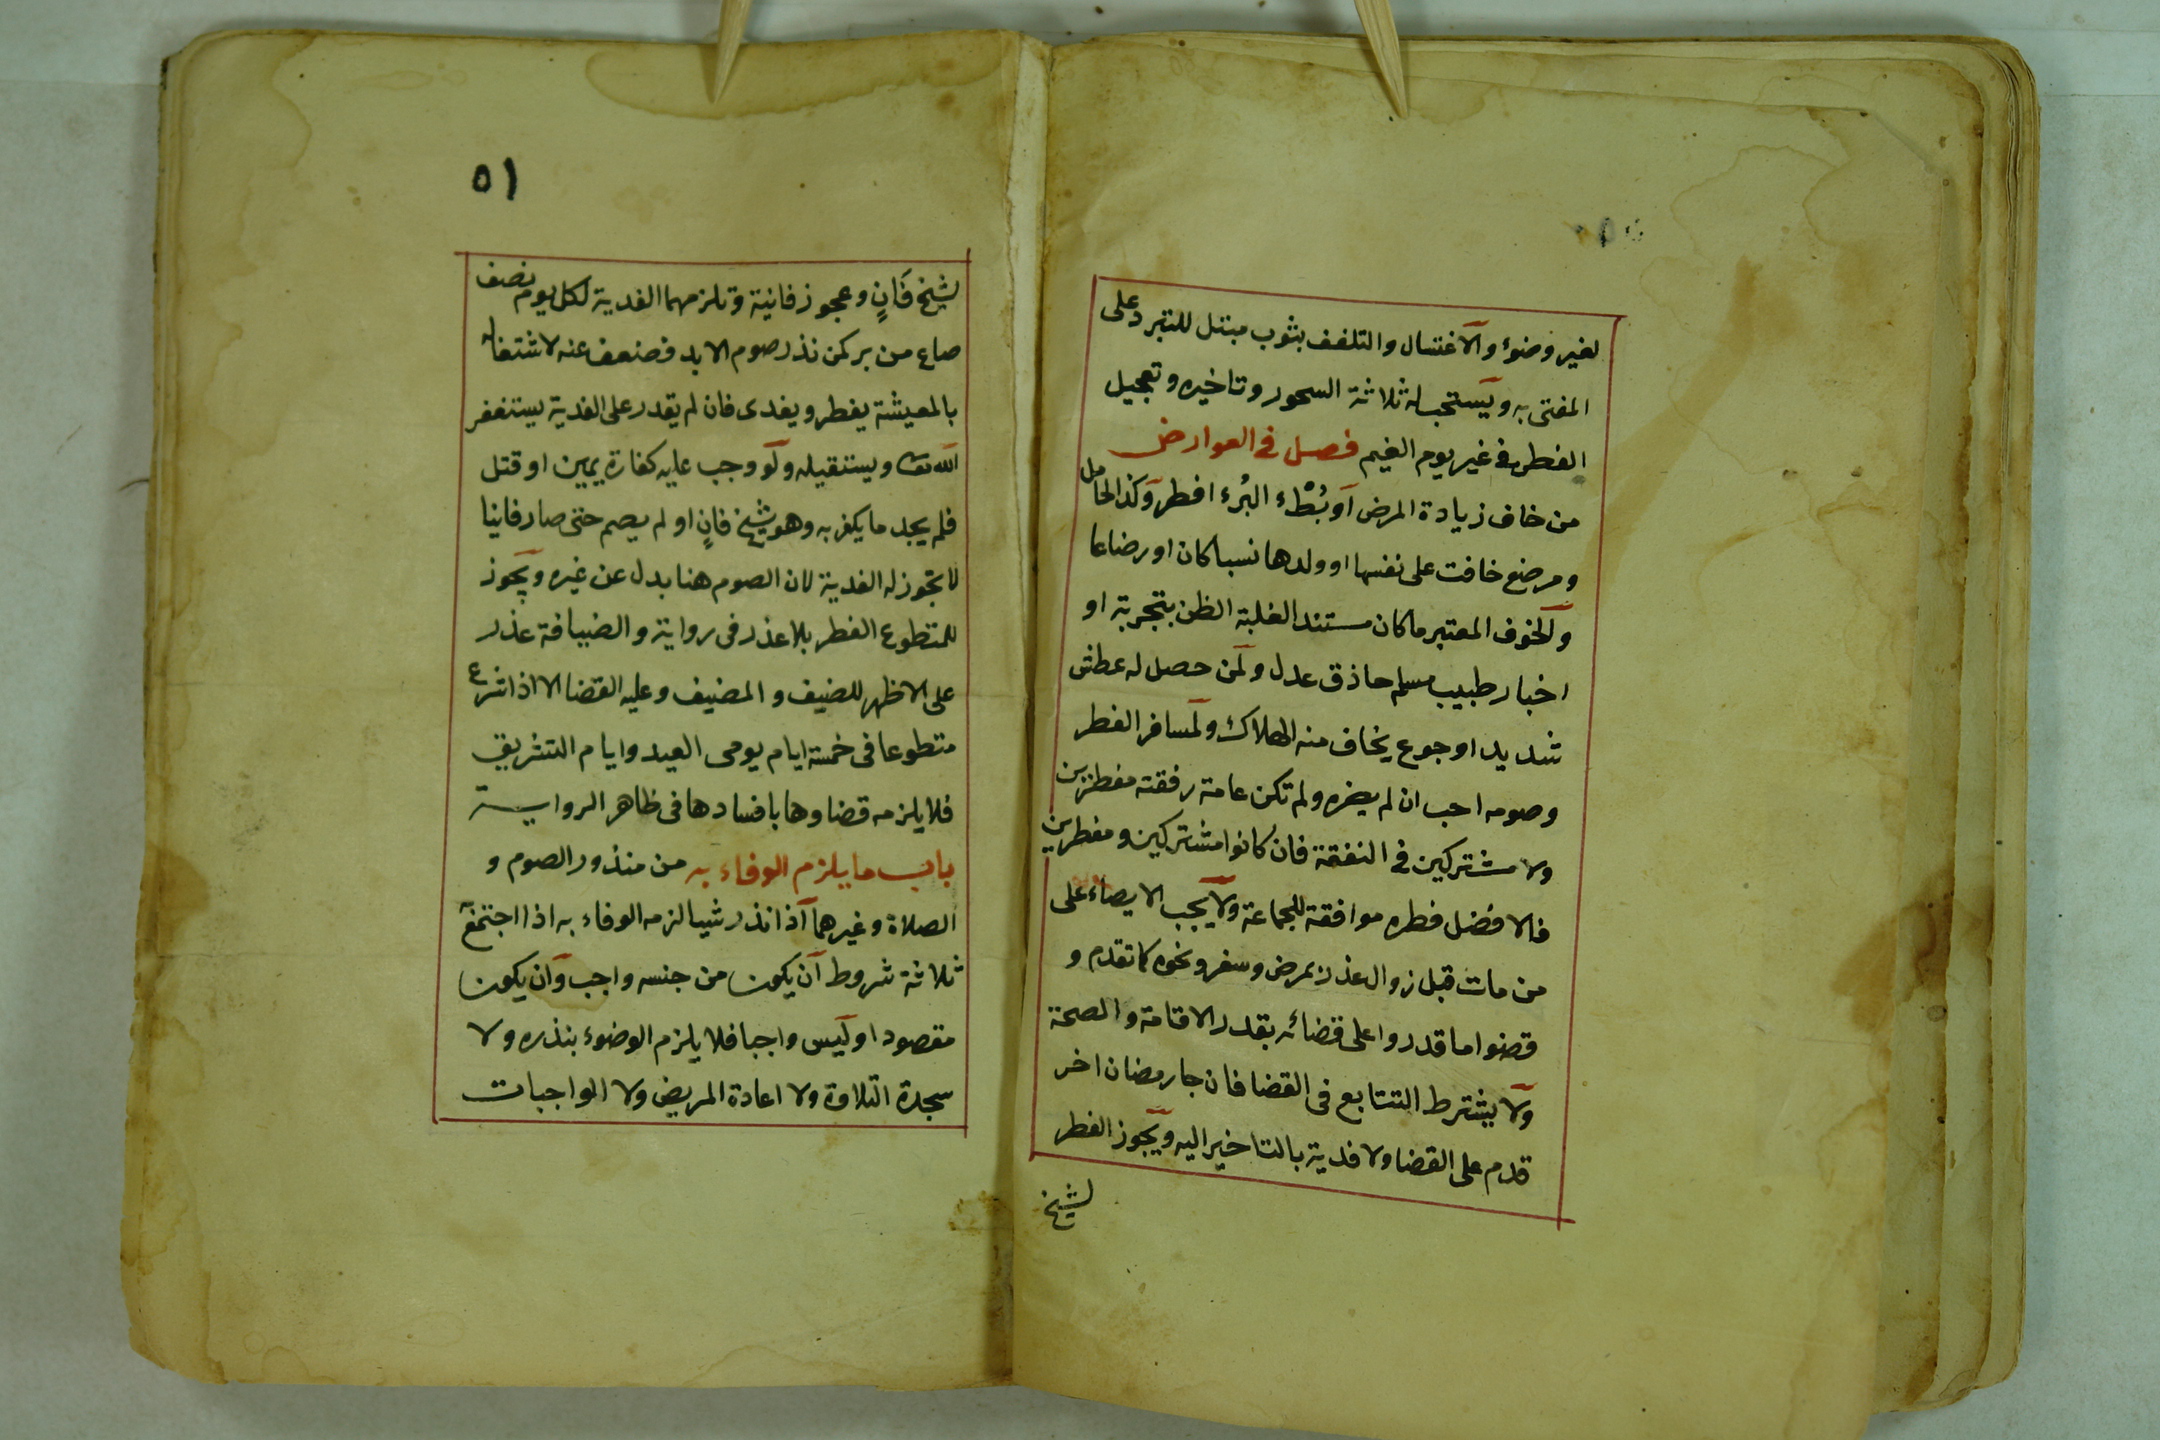 لغير وضوء والاغتسال والتلفف بثوب مبتل للتبرد على
المفتى به ويستحب له ثلاثة السحور وتاخيره وتعجيل
الفطر في غير يوم الغيم فصل في العوارض
من خاف زيادة المرض او بُطْء البُرء افطر وكذا الحامل
ومرضع خافت على نفسها او ولدها نسبا كان او رضاعا
والخوف المعتبر ما كان مستندا لغلبة الظن بتجربة او
اخبار طبيب مسلم حاذق عدل ولمن حصل له عطش
شديد او جوع يخاف منه الهلاك ولمسافر الفطر
وصومه احب ان لم يضره ولم تكن عامة رفقته مفطرين
ولا مشتركين في النفقة فان كانوا مشتركين ومفطرين
فالافضل فطره موافقة للجماعة ولا يجب الايصاء على
من مات قبل زوال عذر بمرض وسفر ونحوه كما تقدم و
قضوا ما قدروا على قضائه بقدر الاقامة والصحة
ولا يشترط التتابع في القضا فان جا رمضان اخر
قدم على القضا ولا فدية بالتاخير اليه ويجوز الفطر
لشيخ
٥١
لشيخ فَانٍ وعجوز فانية وتلزمهما الفدية لكل يوم نصف
صاع من بر كمن نذر صوم الابد فضعف عنه لاشتغاله
بالمعيشة يفطر ويفدى فان لم يقدر على الفدية يستغفر
الله تعا ويستقيله ولو وجب عليه كفارة يمين او قتل
فلم يجد ما يكفر به وهو شيخ فانٍ او لم يصم حتى صار فانيا
لا تجوز له الفدية لان الصوم هنا بدل عن غيره ويجوز
للمتطوع الفطر بلا عذر فى رواية والضيافة عذر
على الاظهر للضيف و المضيف وعليه القضا الا اذا شرع
متطوعا فى خمسة ايام يومى العيد وايام التشريق
فلا يلزمه قضاوها بافسادها فى ظاهر الرواية
باب ما يلزم الوفاء به من منذور الصوم و
الصلاة وغيرهما اذا نذر شيا لزمه الوفاء به اذا اجتمع
ثلاثة شروط ان يكون من جنسه واجب وان يكون
مقصودا وليس واجبا فلا يلزم الوضوء بنذره ولا
سجدة التلاوة ولا اعادة المريض ولا الواجبات